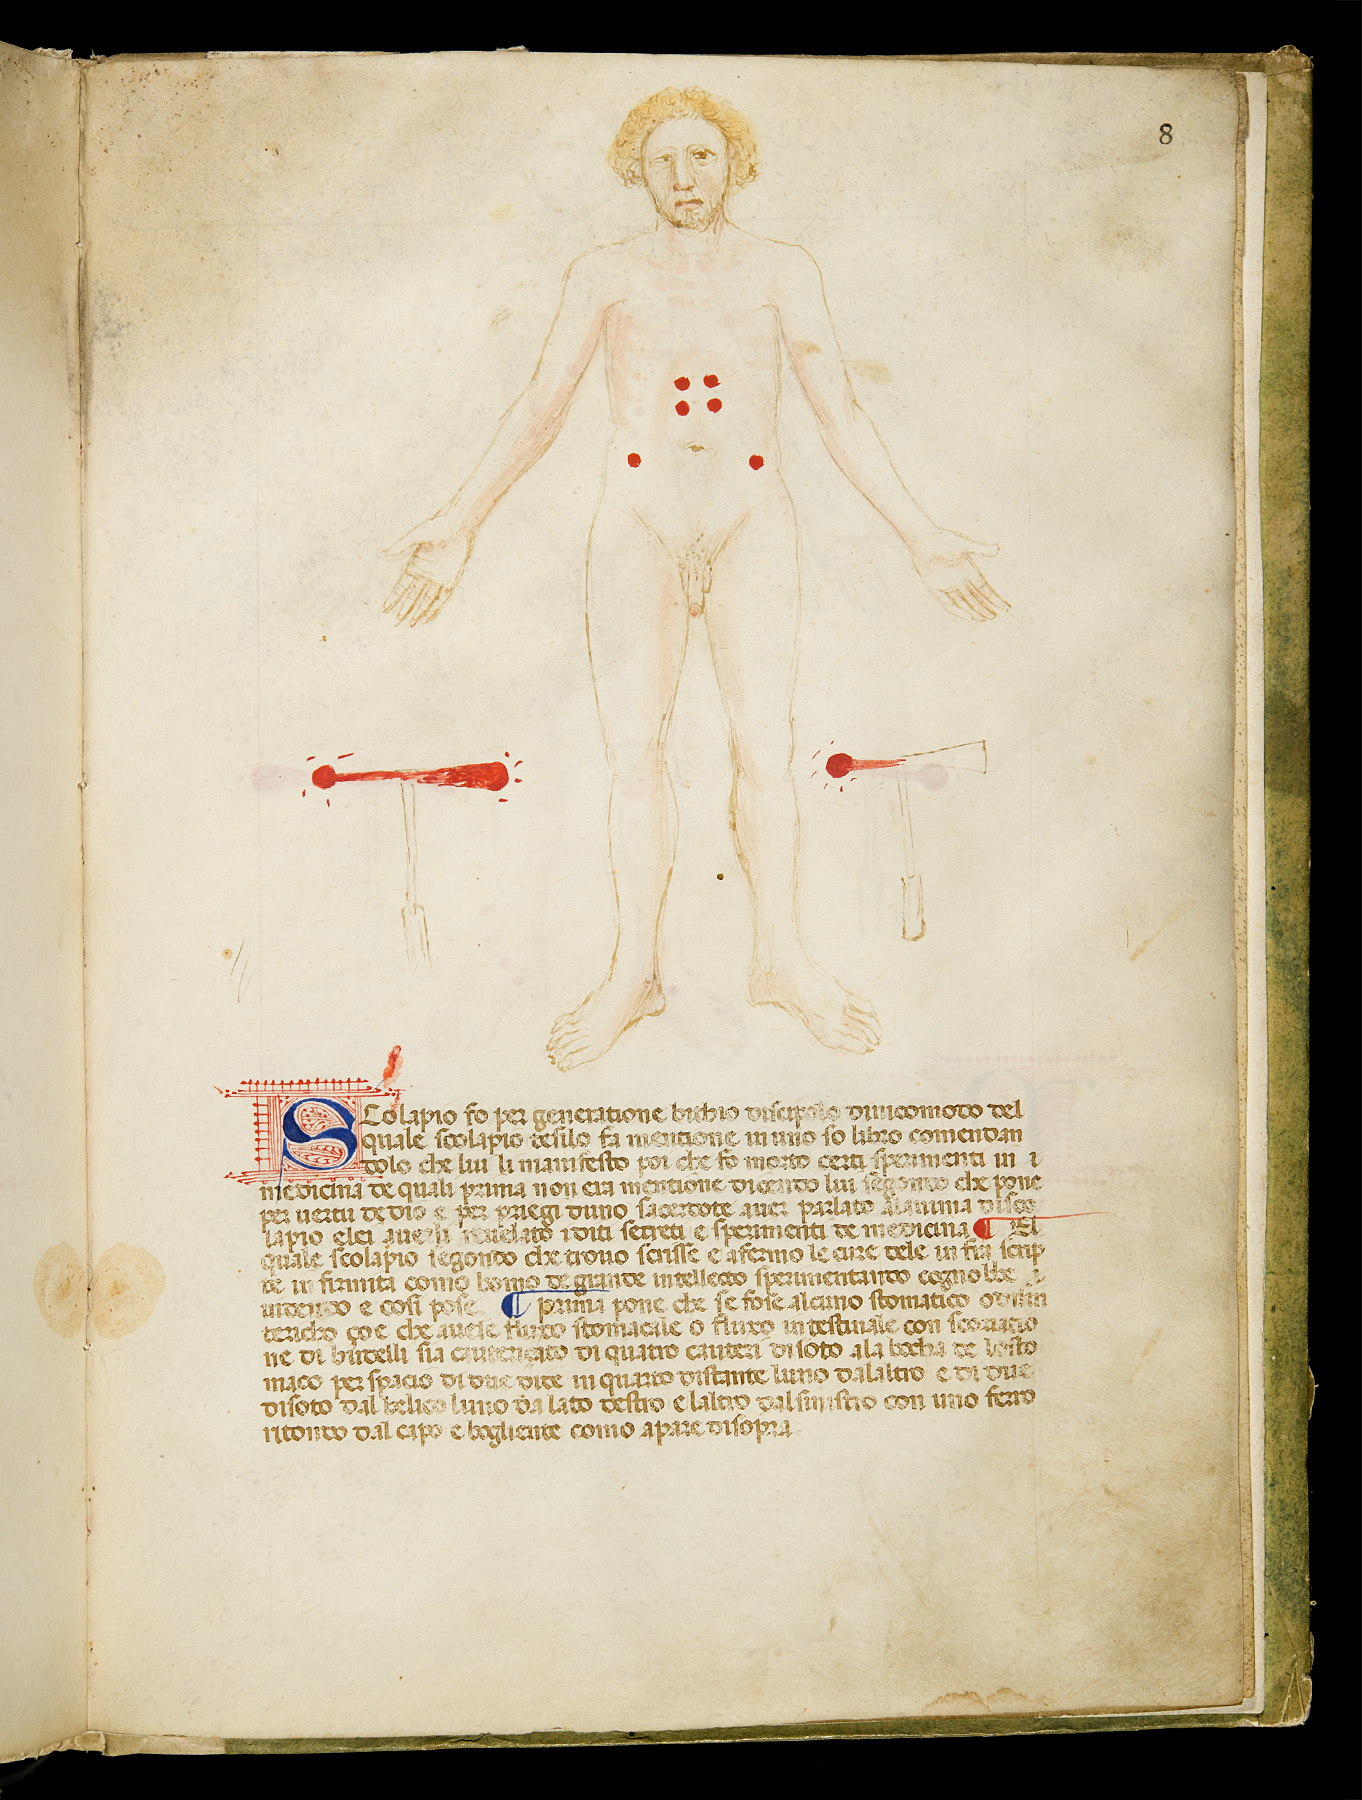 8
Scolapio fo per generatione bichio discipolo dinicomoto del
quale scolapio desilo fa mentione in uno so libro comendan
dolo che lui li manifesto poi che fo morto certi sperimenti in i
medicina de quali prima non era mentione dicendo lui segondo che pone
per uertu de dio e per priegi duno sacerdote auer parlato alanima
lapio e lei auerli reuelato iditi secreti e sperimenti de medicina ¶ El
quale scolapio segondo che trouo scrisse e afermo le cure dele in fra scrip
te in firmita como homo de grande intellecto sperimentando cognobbe
uidendo e cosi pose ¶ prima pone che se fose alcuno stomatico
tericho çoe che auese fluxo stomacale o fluxo intestinale con scoriatio
ne di budelli sia cauterigato di quatro cauteri disoto ala bocha de lo sto
maco per spacio di due dite in quarto distante luno dalaltro e di due
disoto dal belico luno da lato destro e laltro dal sinistro con uno ferro
ritondo dal capo e bogliente como apare disopra